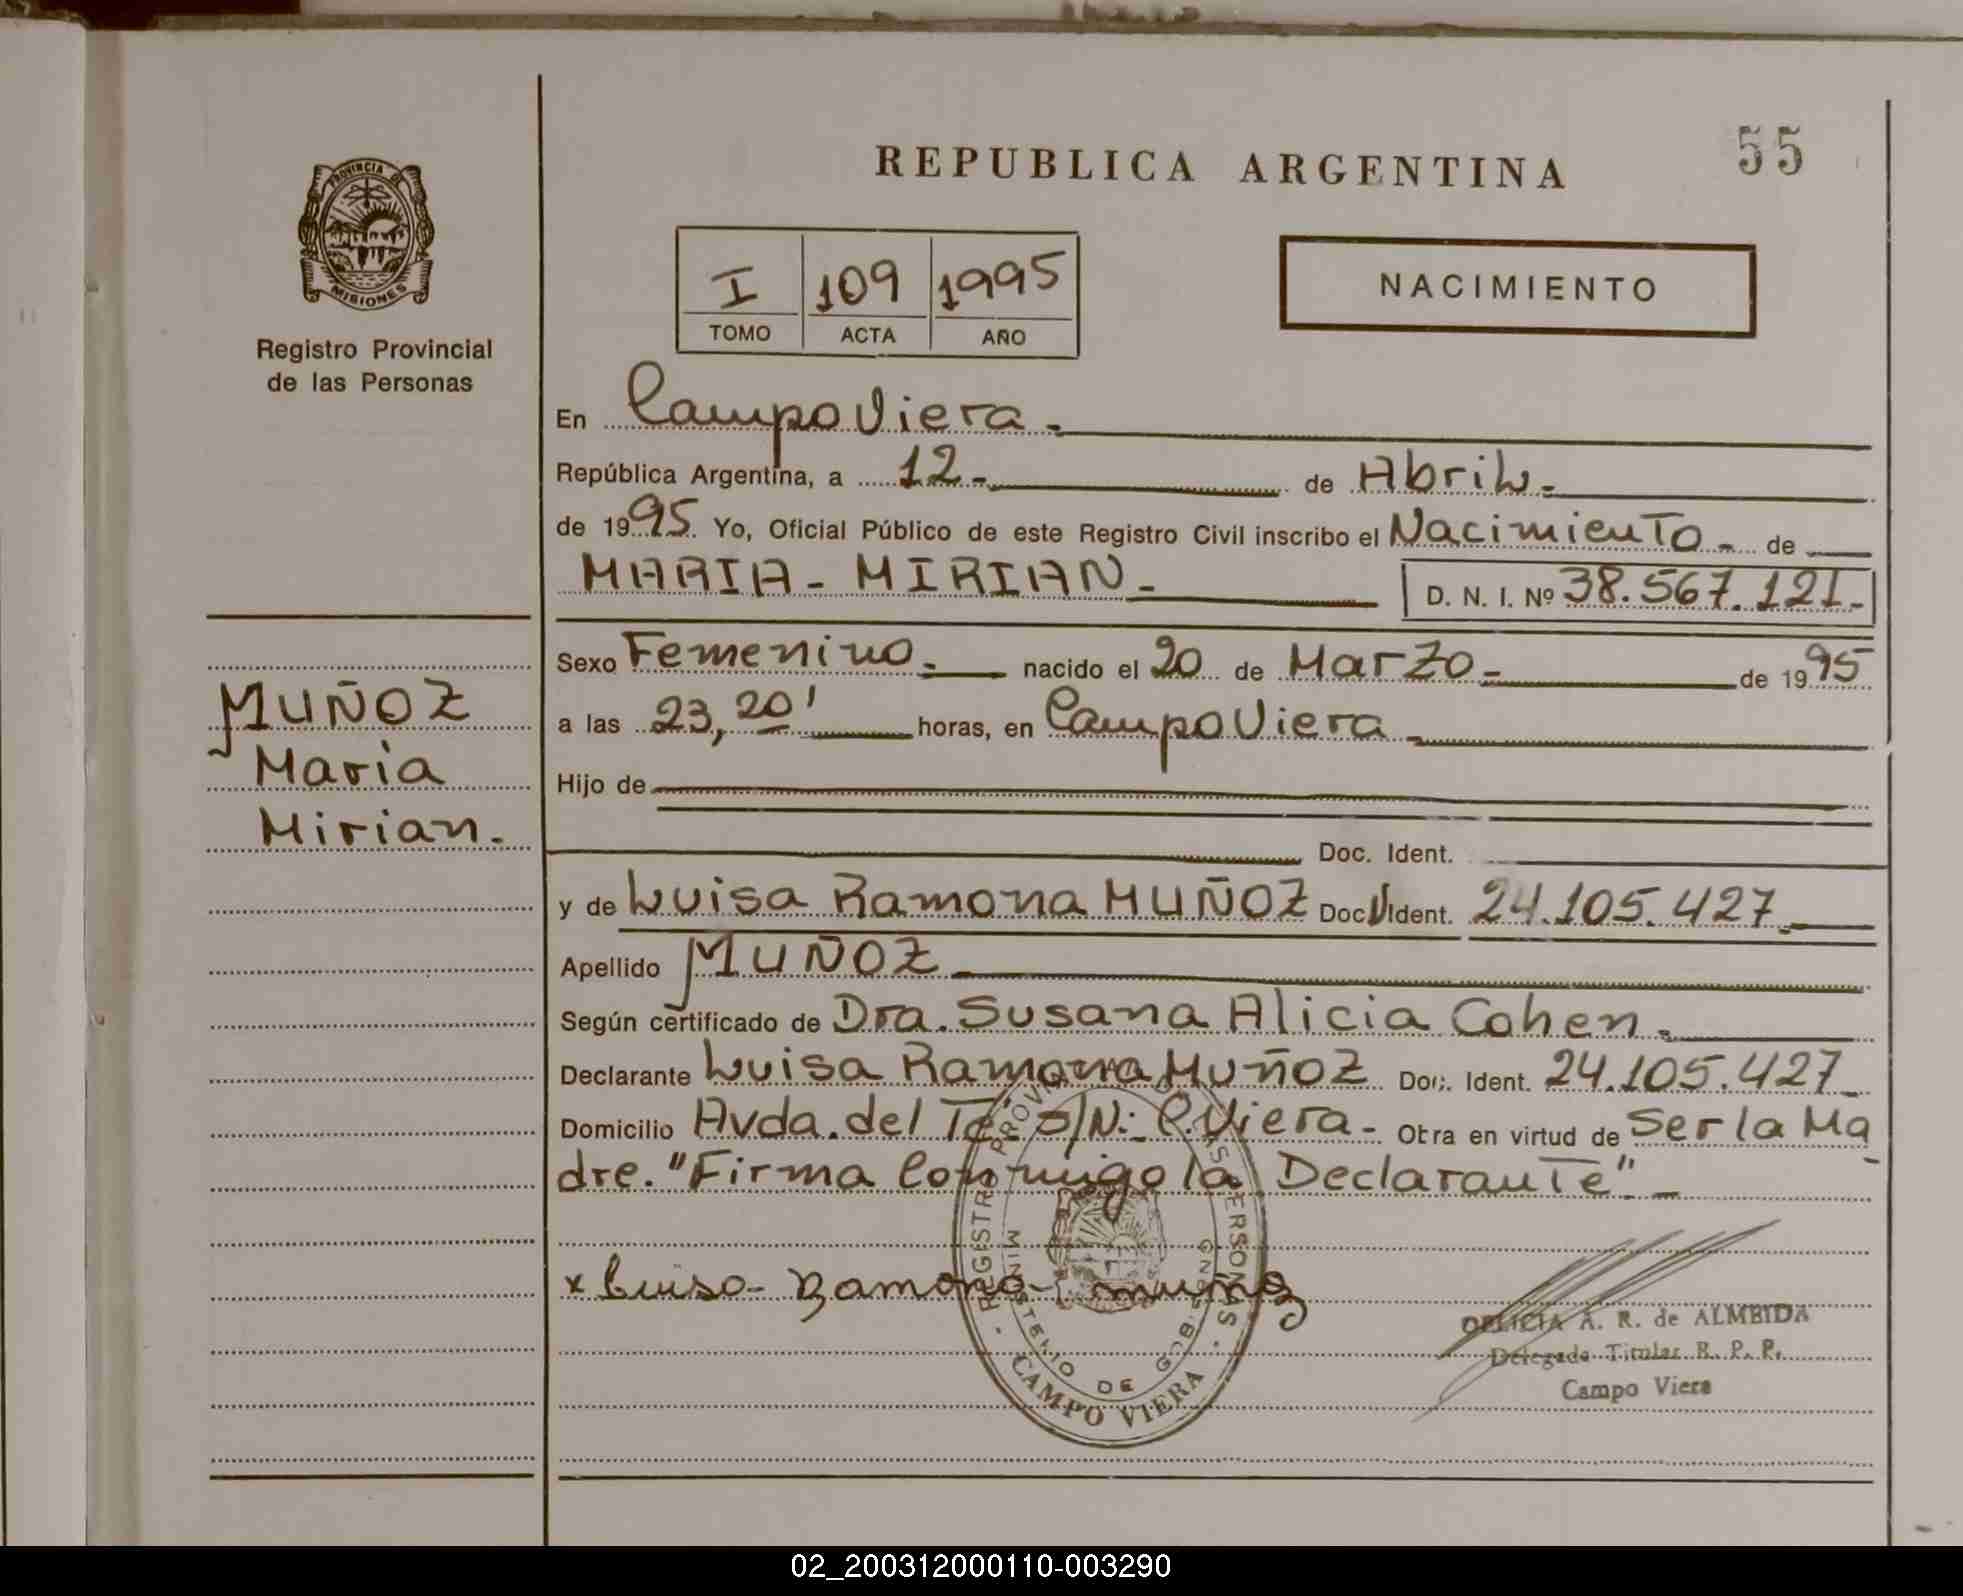 REPUBLICA ARGENTINA
55
PROVINCIA DE
MISIONES
Registro Provincial
de las Personas
I 109 1995
TOMO ACTA AÑO
NACIMIENTO
En Campo Viera.
República Argentina, a 12 de Abril
de 1995 Yo, Oficial Público de este Registro Civil inscribo el Nacimiento de
MARIA - MIRIAN
D. N. I. Nº 38.567.121
Sexo Femenino. nacido el 20 de Marzo de 1995
a las 23,20' horas, en Campo Viera
Hijo de
Doc. Ident.
y de Luisa Ramona MUÑOZ Doc Ident. 24.105.427
Apellido MUÑOZ
Según certificado de Dra. Susana Alicia Cohen.
Declarante Luisa Ramona MUÑOZ Doc. Ident. 24.105.427
Domicilio Avda. del Té S/N: C. Viera - Obra en virtud de Ser la Ma
dre. "Firma Conmigo la Declarante"
MUÑOZ
Maria
Mirian.
x Luisa Ramona muñoz
CAMPO VIERA
MINISTERIO DE GOB.
A. R. de ALMEIDA
Delegada Titular R. P. P.
Campo Viera
02_200312000110-003290